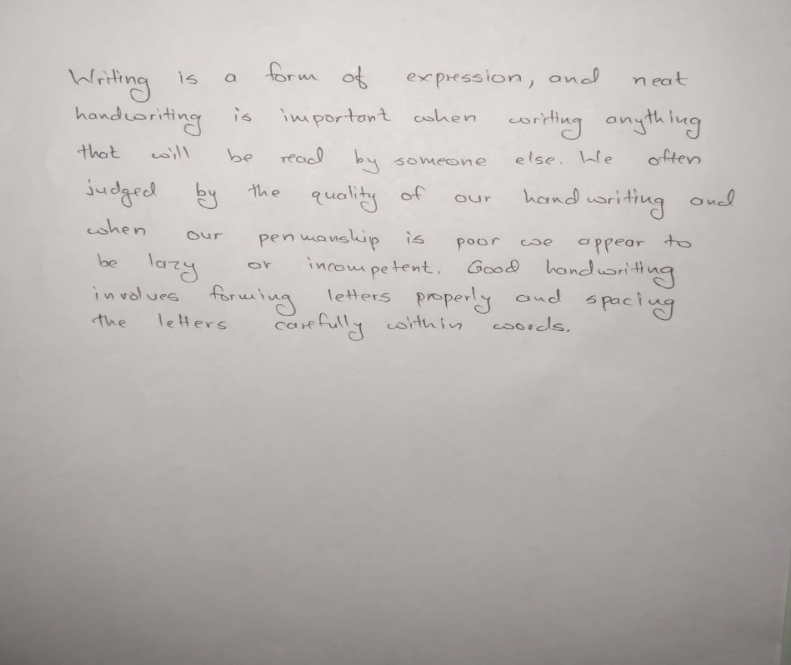 Writing is a form of expression, and neat
handwriting is important when writing anything
that will be read by someone else. We often
judged by the quality of our handwriting and
when our penmanship is poor we appear to
be lazy or incompetent. Good handwriting
involves forming letters properly and spacing
the letters carefully within words.